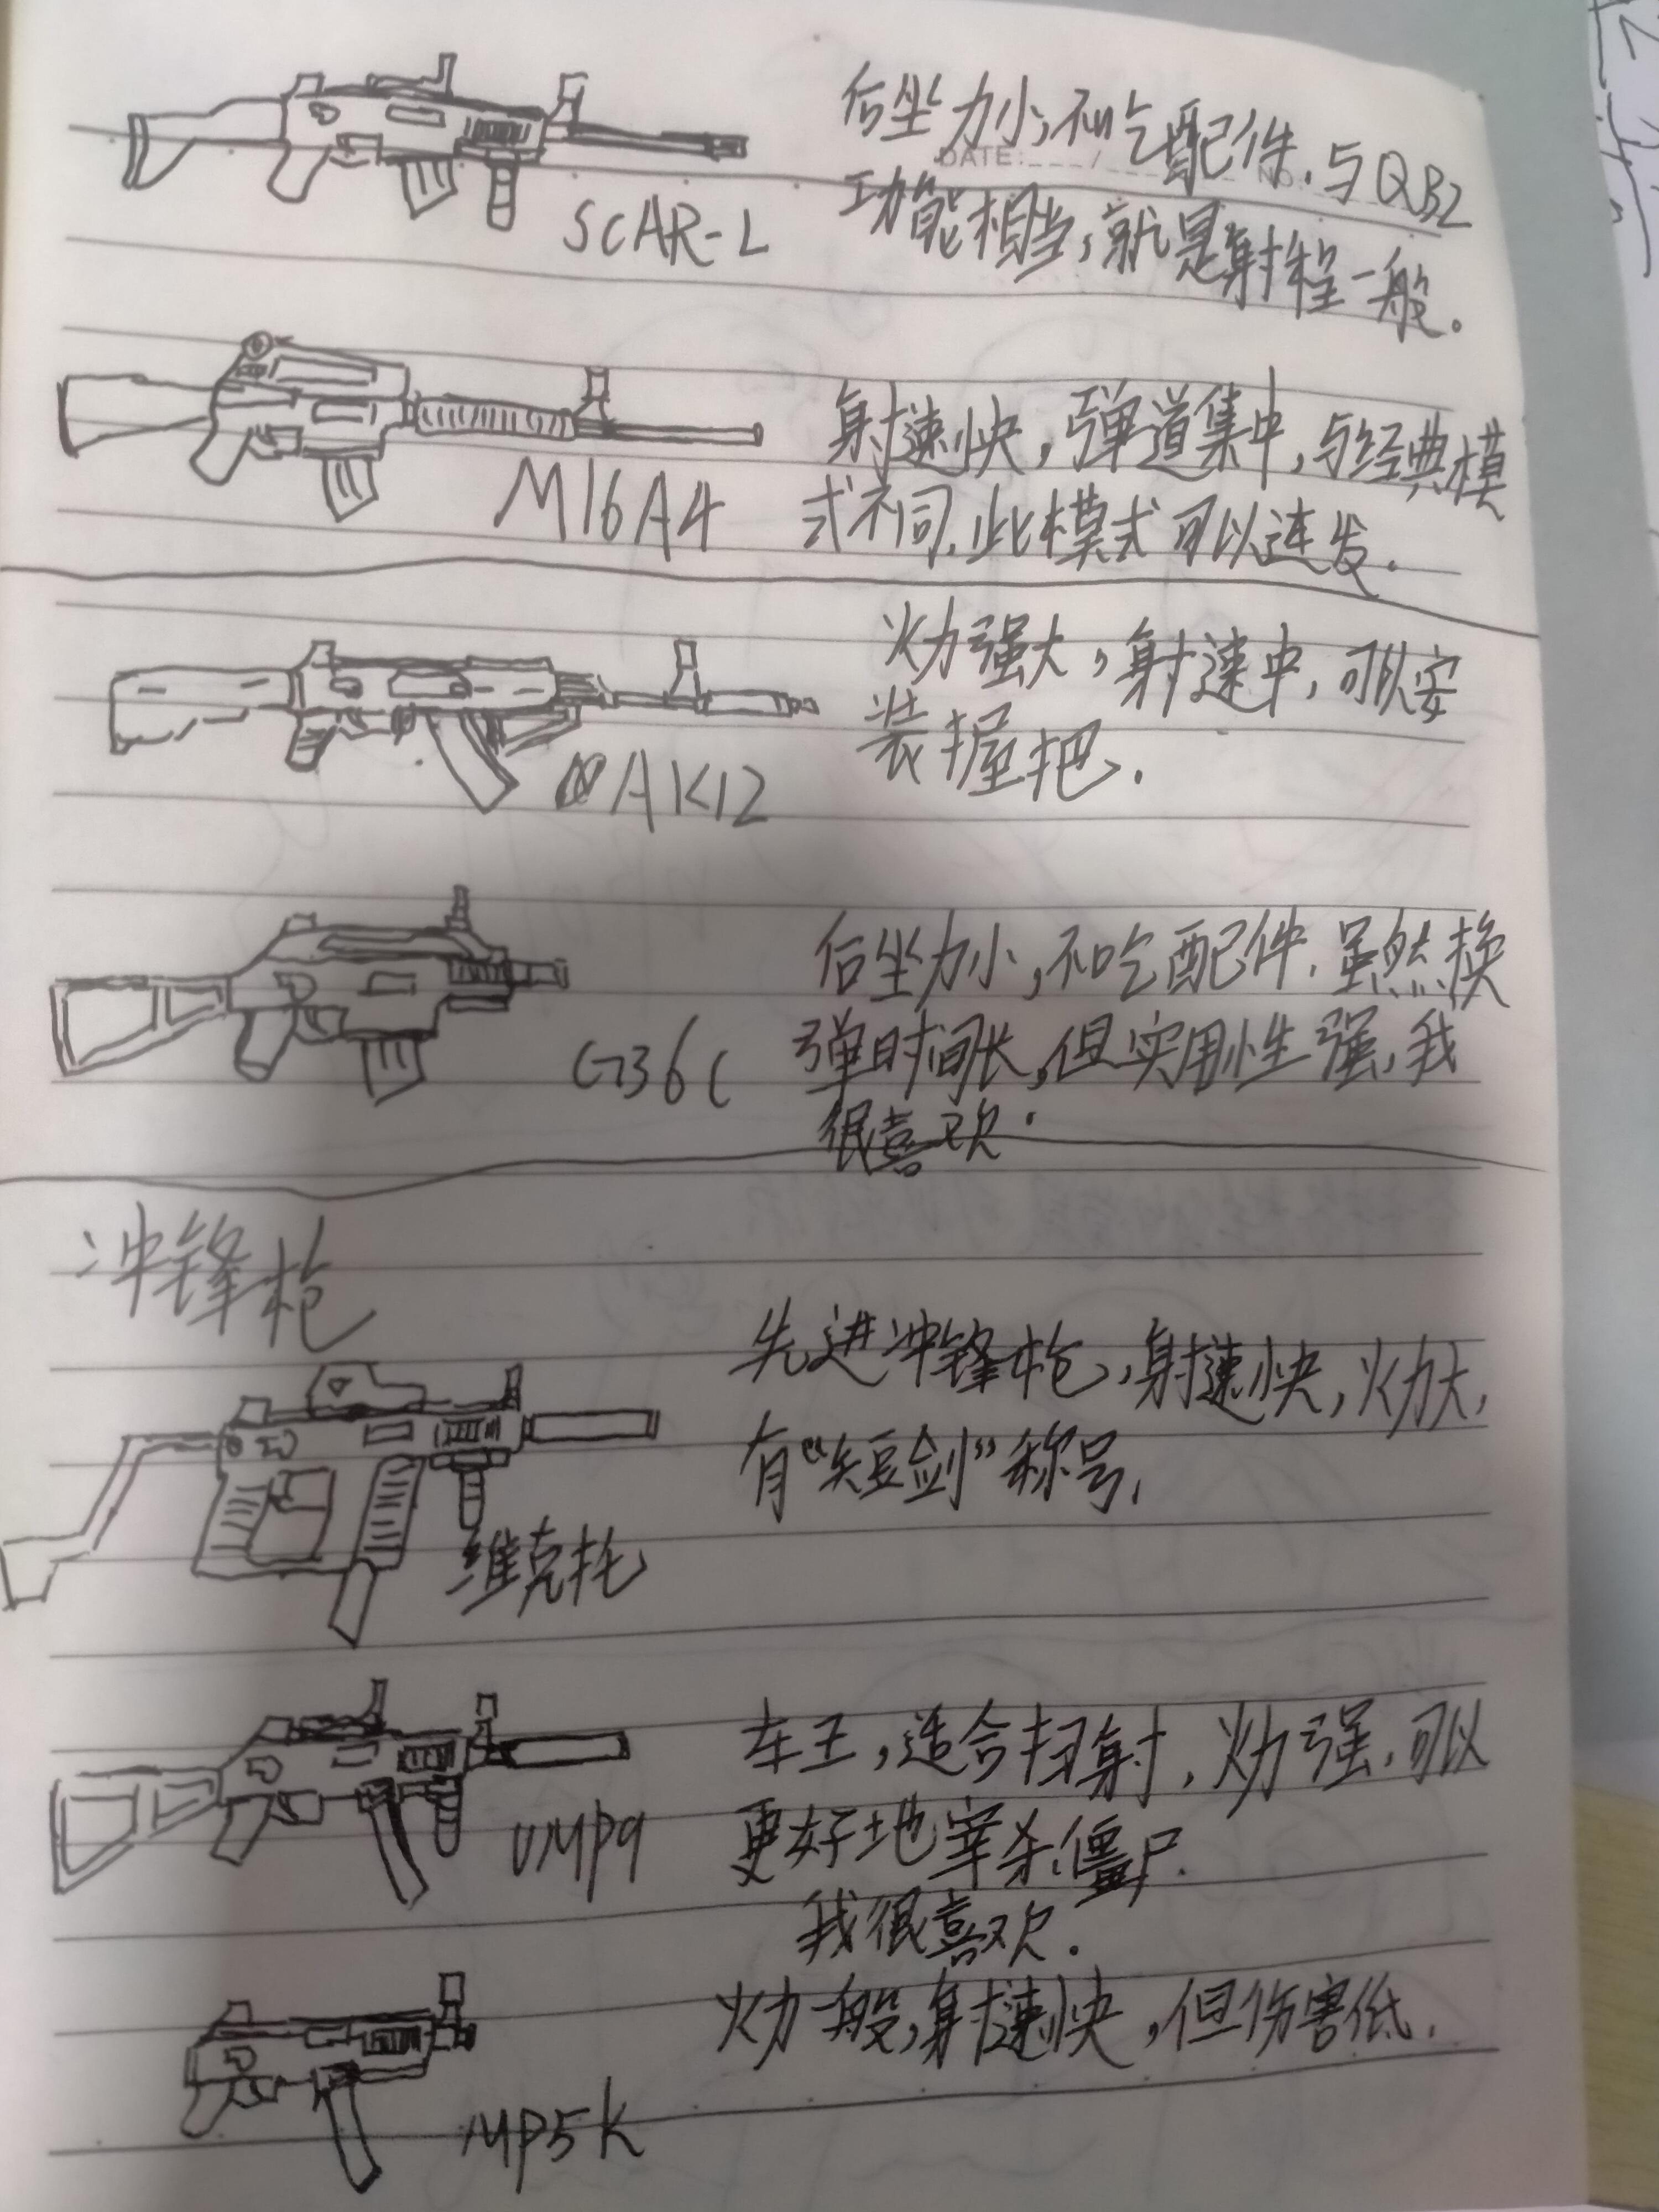 后坐力小,不吃配件.与QBZ
DATE: / NO.
功能相当,就是射程一般.
SCAR-L
射速快,弹道集中,与经典模
式不同.此模式可以连发.
M16A4
火力强大,射速中,可以安
装握把.
AK12
后坐力小,不吃配件.虽然换
弹时间长,但实用性强,我
很喜欢.
G36C
冲锋枪
先进冲锋枪,射速快,火力大,
有“短剑”称号,
维克托
车王,适合扫射,火力强,可以
更好地宰杀僵尸.
我很喜欢.
UMP9
火力一般,射速快,但伤害低.
MP5K